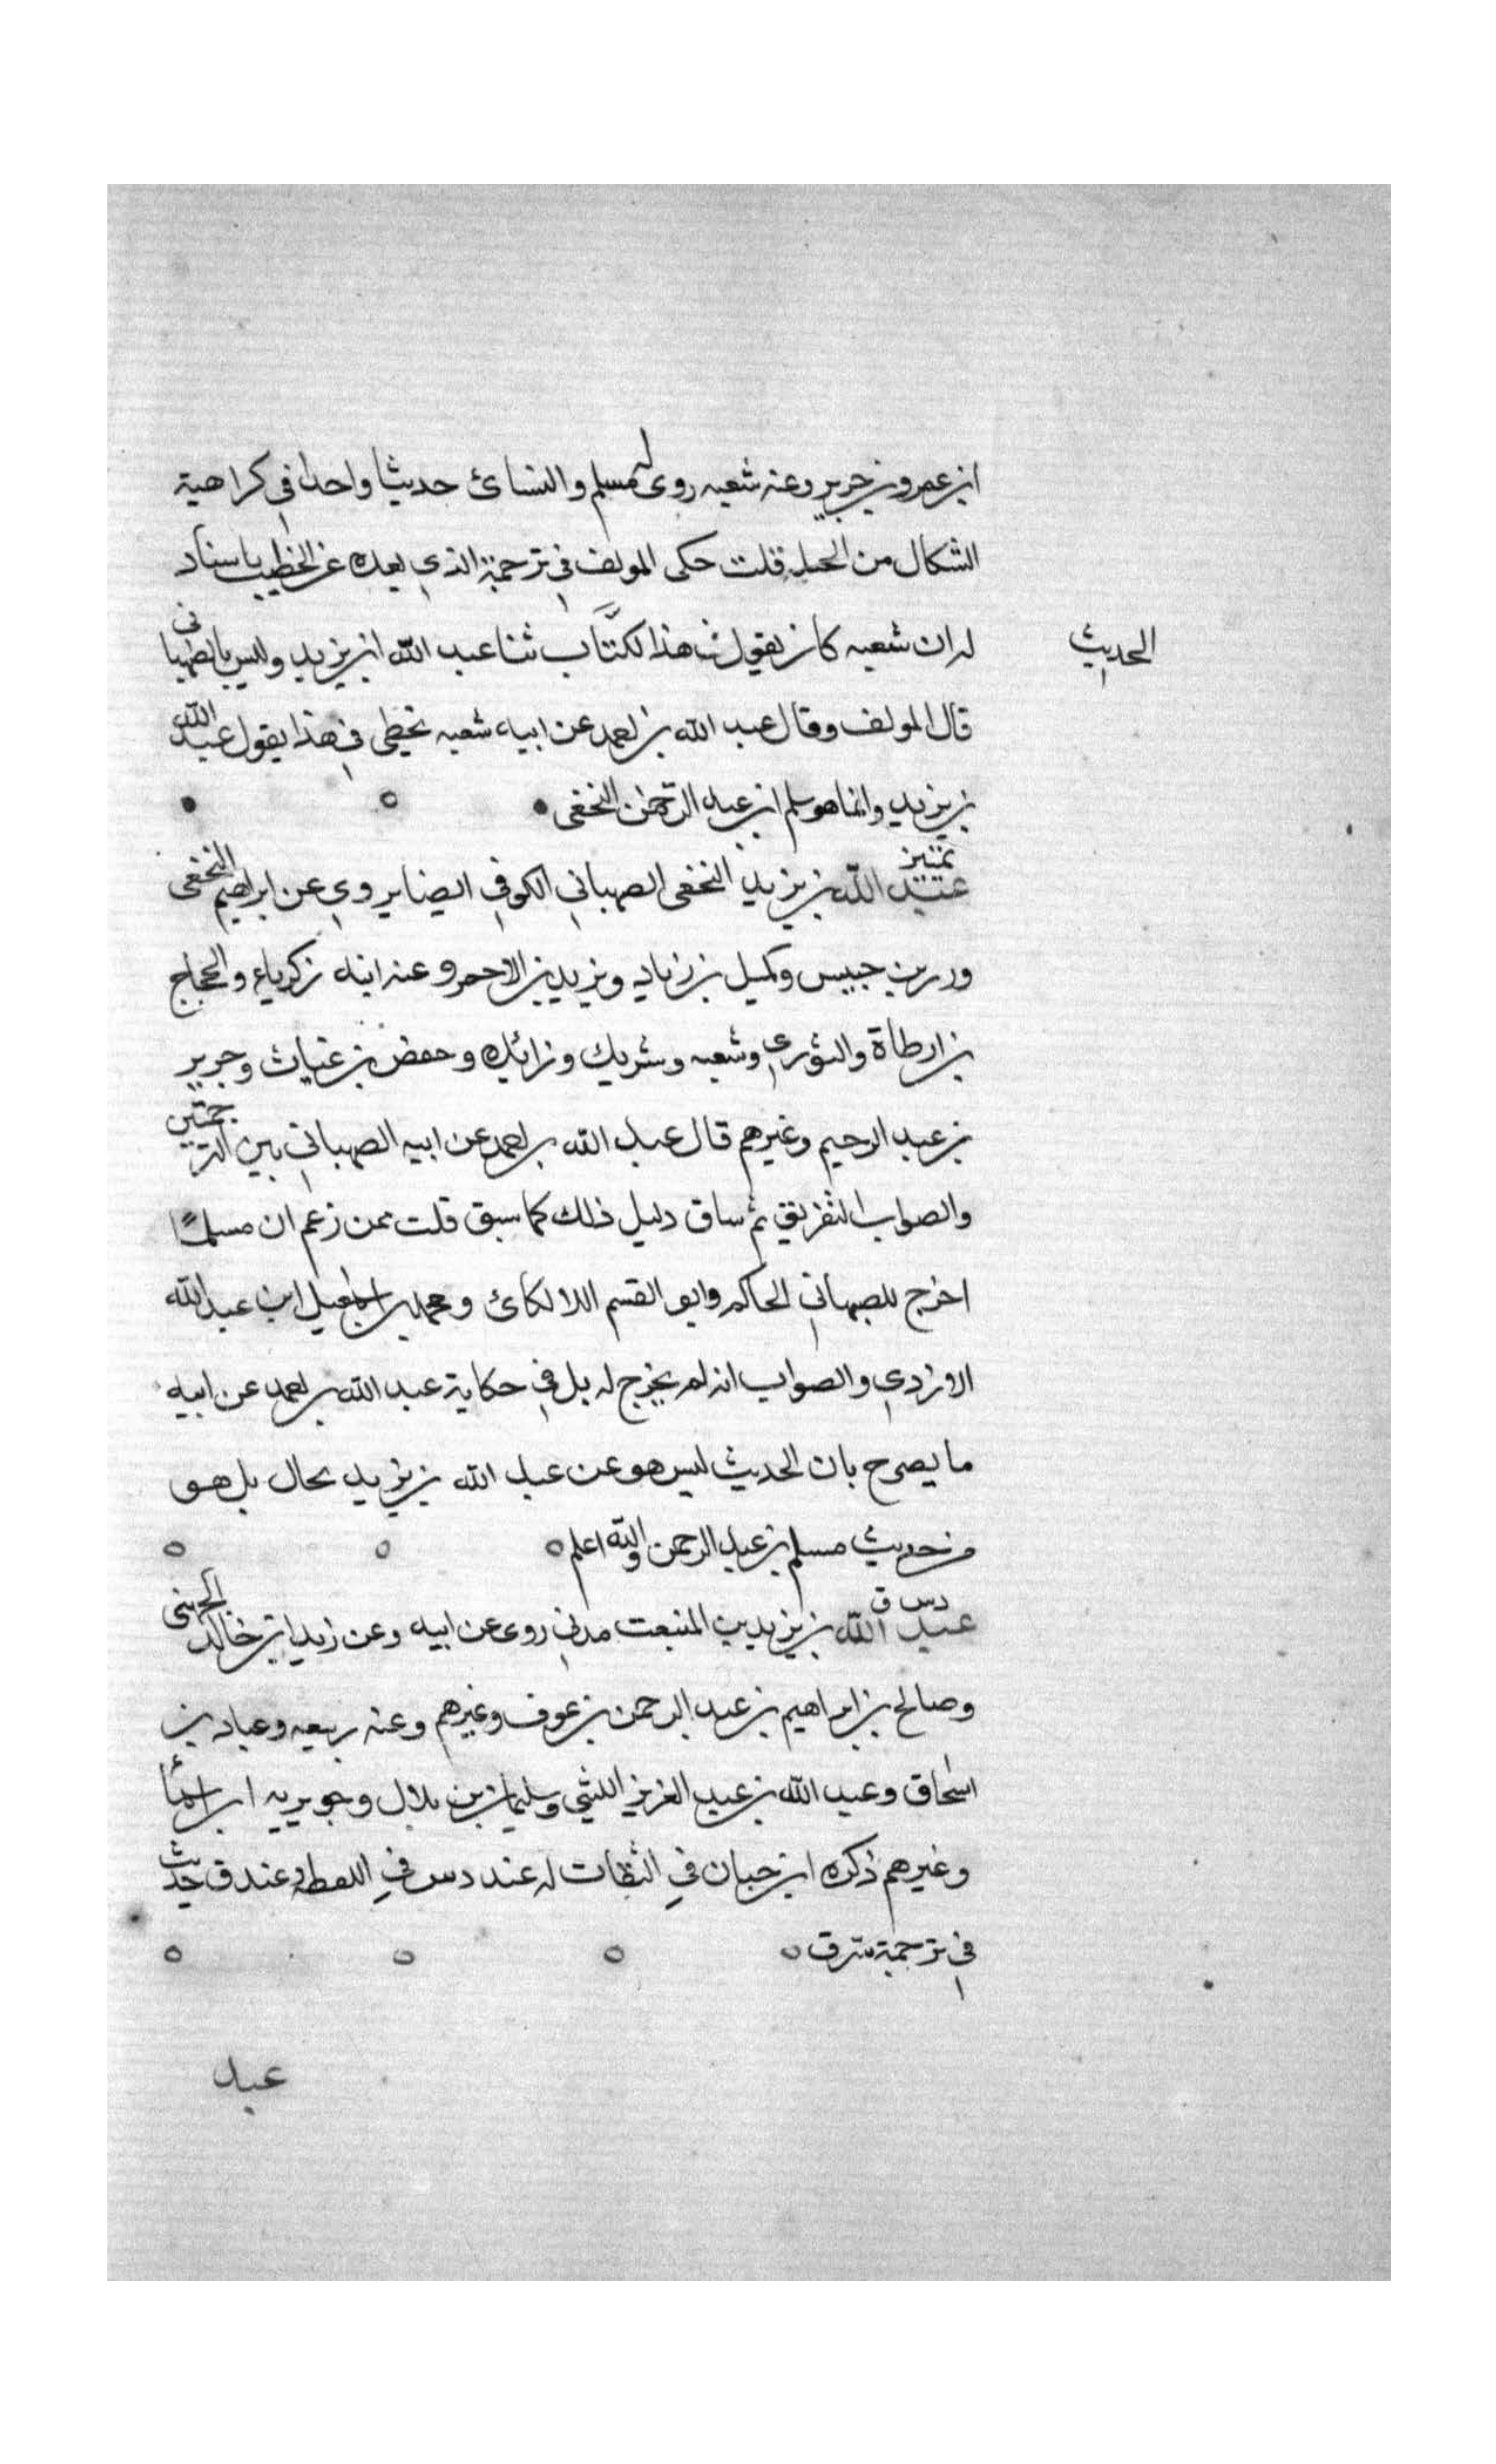 ابن عمرو بن جرير وعنه شعبه روى له مسلم والنسائ حديثا واحدا في كراهية
الشكال من الخيل قلت حكى المولف في ترجمة الذي بعده عن الخطيب باسناد
له ان شعبه كان يقول في هذا الكتاب ثنا عبد الله ابن يزيد وليس بالصهباني
الحديث
قال المولف وقال عبد الله بن احمد عن ابيه شعبه يخطي في هذا يقول عبد الله
بن يزيد وانما هو سلم ابن عبد الرحمن النخعي
تمييز
عبد الله بن يزيد النخعي الصهباني الكوفي ايضا يروي عن ابراهيم النخعي
وزر بن حبيش وكميل بن زياد ويزيد بن الاحمر وعنه ابنه زكرياء والحجاج
بن ارطاة والثوري وشعبه وشريك وزائده وحفص بن غياث وجرير
بن عبد الرحيم وغيرهم قال عبد الله بن احمد عن ابيه الصهباني بين الترجمتين
والصواب التفريق ثم ساق دليل ذلك كما سبق قلت ممن زعم ان مسلمًا
اخرج للصهباني الحاكم وابو القسم اللالكائ ومحمد بن اسمعيل ابن عبد الله
الازدي والصواب انه لم يخرج له بل في حكاية عبد الله بن احمد عن ابيه
ما يصرح بان الحديث ليس هو عن عبد الله بن يزيد بحال بل هو
من حديث مسلم بن عبد الرحمن والله اعلم
د س ق
عبد الله بن يزيد بن المنبعث مدني روى عن ابيه وعن زيد ابن خالد الجهني
وصالح بن ابراهيم بن عبد الرحمن بن عوف وغيرهم وعنه ربيعه وعباد بن
اسحاق وعبد الله بن عبد العزيز الليثي وسليمان بن بلال وجويريه ابن اسمأ
وغيرهم ذكره ابن حبان في الثقات له عند د س في اللقطه وعند ق حديث
في ترجمة سرق
عبد